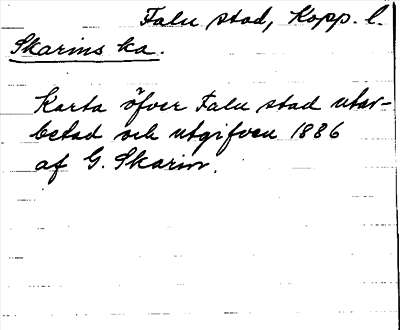 Falu stad, Kopp. l.
Skarins ka.
Karta öfver Falu stad utar-
betad och utgifven 1886
af G. Skarin.